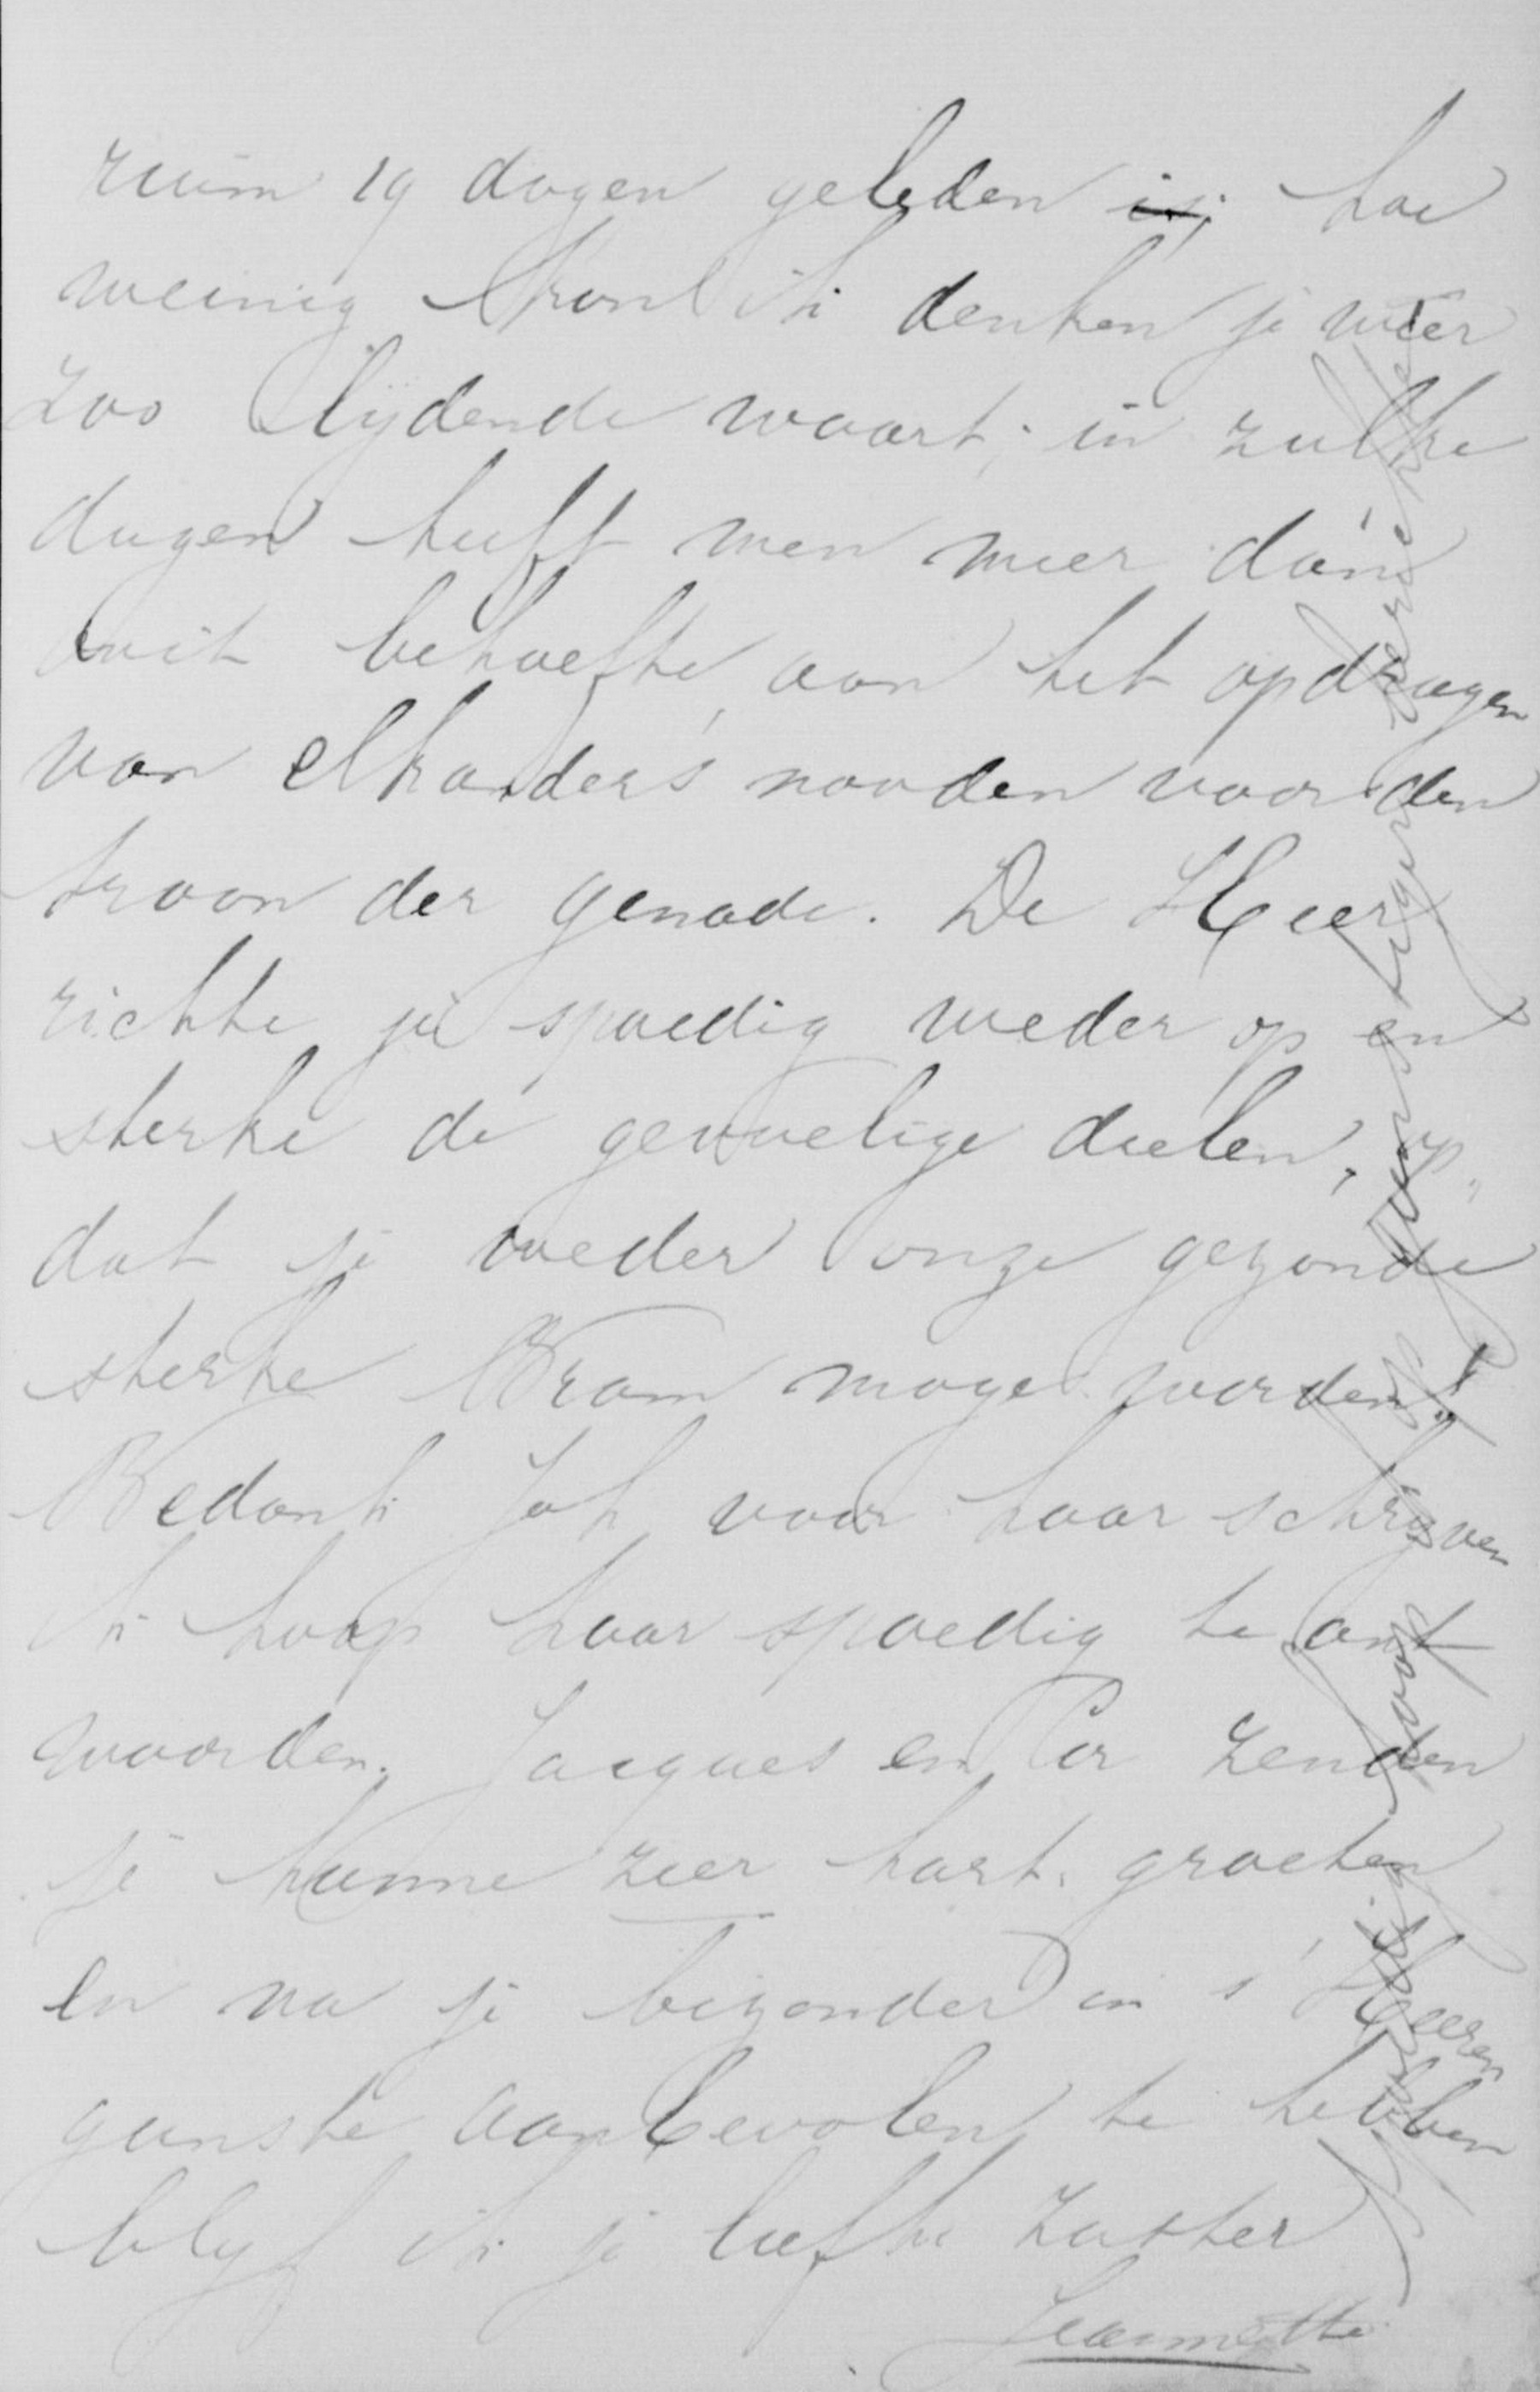 ruim 19 dagen geleden is; hoe
weinig kon ik denken je weer
zoo lijdende waart; in zulke
dagen heeft men meer dan
ooit behoefte aan het opdragen
van elkanders nooden voor den
troon der genade. De Heer
richte je spoedig weder op en
sterke de gevoelige deelen, op„
dat je weder onze gezonde
sterke Bram moge worden!
Bedank Joh voor haar schrijven
ik hoop haar spoedig te ant
woorden. Jacques en Cor zenden
je hunne zeer hart. groeten
en na je bizonder in s' Heeren
gunste aanbevolen te hebben
blyf ik je liefh zuster
Jeannette
spoedig hoop ik gunstigere berichten